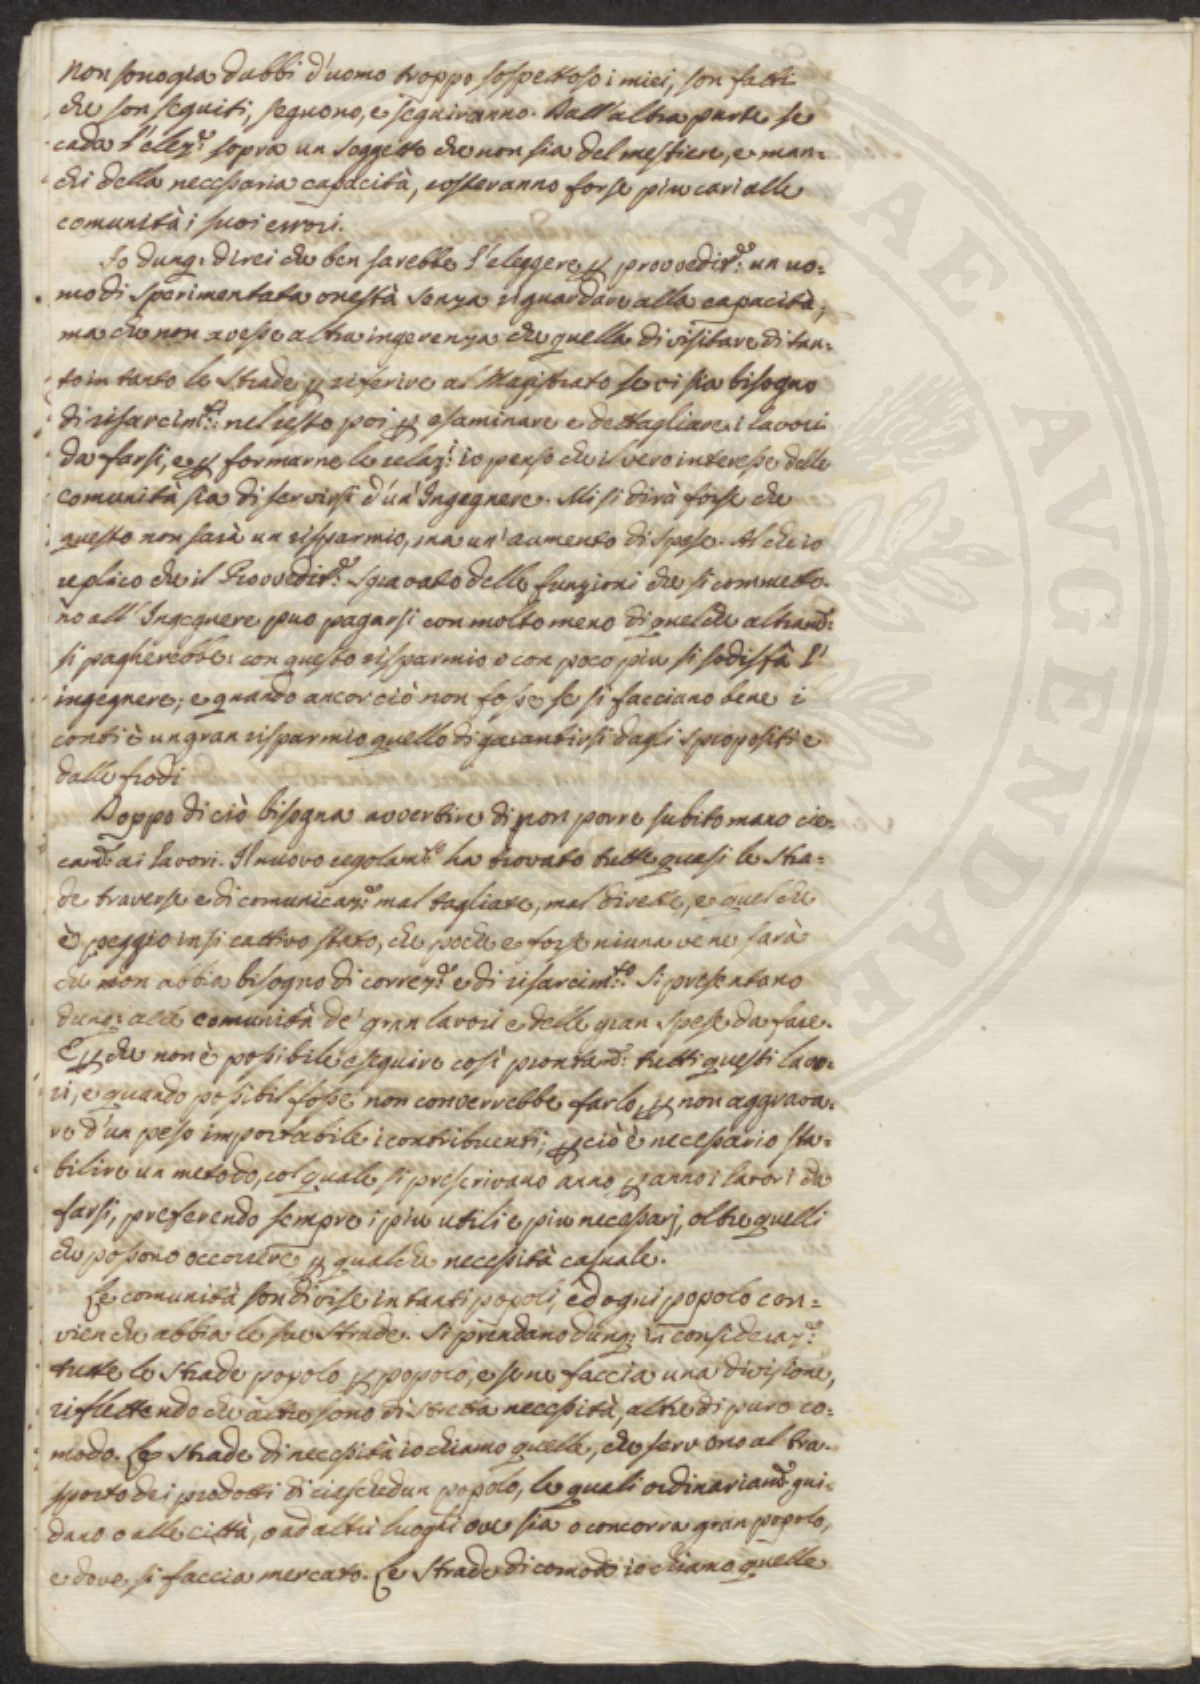 Non son già dubbi d'uomo troppo sospettoso i miei, son fatti
che son seguiti, seguono, e seguiranno. Dall'altra parte se
cada l'elez.e sopra un soggetto che non sia del mestiere, e man=
chi della necessaria capacità, costeranno forse piu cari alle
comunità i suoi errori.
Io dunq: direi che ben sarebbe l'eleggere p provvedit.e: un uo=
mo di sperimentata onestà senza riguardare alla capacità;
ma che non avesse altra ingerenza che quella di visitare di tan=
to in tanto le strade p riferire al Magistrato se vi sia bisogno
di risarcim.to: nel resto poi p esaminare e dettagliare i lavori
da farsi, e p formarne le relaz.i: io penso che il vero interesse delle
comunità sia di servirsi d'un'Ingegnere. Mi si dirà forse che
questo non sarà un risparmio, ma un'aumento di spese. Al che io
replico che il Provvedit.e: sgravato delle funzioni che si commetto=
no all'Ingegnere puo pagarsi con molto meno di quel che altram.e:
si pagherebbe: con questo risparmio o con poco piu si sodisfà l'
ingegnere; e quando ancor ciò non fosse se si facciano bene i
conti è un gran risparmio quello di garantirsi dagli spropositi e
dalle frodi
Doppo di ciò bisogna avvertire di non porre subito mano cie=
cam.e ai lavori. Il nuovo regolam.to ha trovato tutte quasi le stra=
de traverse e di comunicaz.e: mal tagliate, mal dirette, e quel che
è peggio in si cattivo stato, che poche e forse niuna ve ne sarà
che non abbia bisogno di correz.e e di risarcim.to: Si presentano
dunq: alla comunità de' gran lavori e delle gran spese da fare.
E p che non è possibile eseguire così prontam.e: tutti questi lavo=
ri, e quando possibil fosse non converrebbe farlo, p non aggrava=
re d'un peso importabile i contribuenti; p ciò è necessario sta=
bilire un metodo, col quale si prescrivano anno p anno i lavori da
farsi, preferendo sempre i piu utili e piu necessarj, oltre quelli
che possono occorrere p qualche necessità casuale.
Le comunità son divise in tanti popoli, ed ogni popolo con=
vien che abbia le sue strade. Si prendano dunq: in consideraz.e:
tutte le strade popolo p popolo, e se ne faccia una divisione,
riflettendo che altre sono di stretta necessità, altre di puro co=
modo. Le strade di necessità io chiamo quelle, che servono al tra=
sporto dei prodotti di ciaschedun popolo, le quali ordinariam.e gui=
dano o alle città, o ad altri luoghi ove sia o concorra gran popolo,
e dove si faccia mercato. Le strade di comodo io chiamo quelle